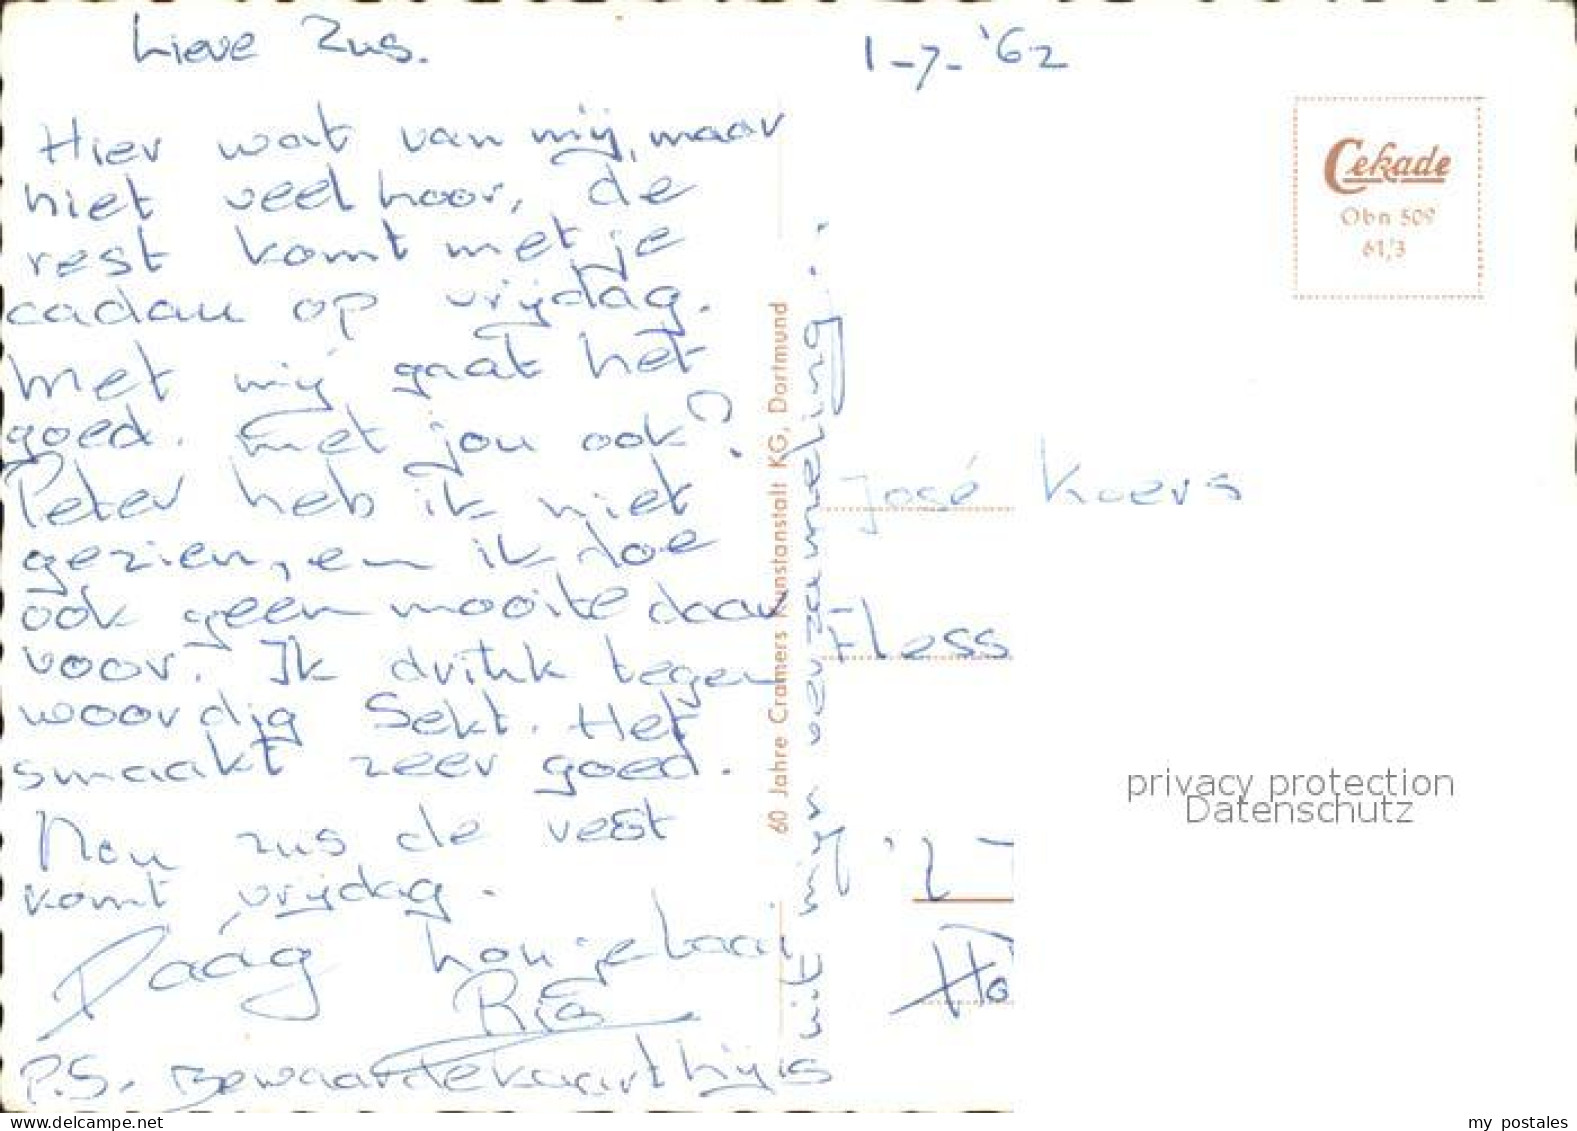 Lieve Zus.
1-7-'62
Hier wat van mij, maar
niet veel hoor, de
rest komt met je
cadau op vrijdag.
Met mij gaat het
goed. Met jou ook?
Peter heb ik niet
gezien, en ik doe
ook geen mooite daar
voor. Ik drink tegen
woordig Sekt. Het
smaakt zeer goed.
Nou zus de rest
komt vrijdag.
Daág hou je taai
Ria
P.S. Bewaar de kaart hij is
uit mijn verzameling...
60 Jahre Cramers Kunstanstalt KG, Dortmund
Cekade
Obn 509
61/3
José Koers
Fless
Ho
privacy protection
Datenschutz
my postales